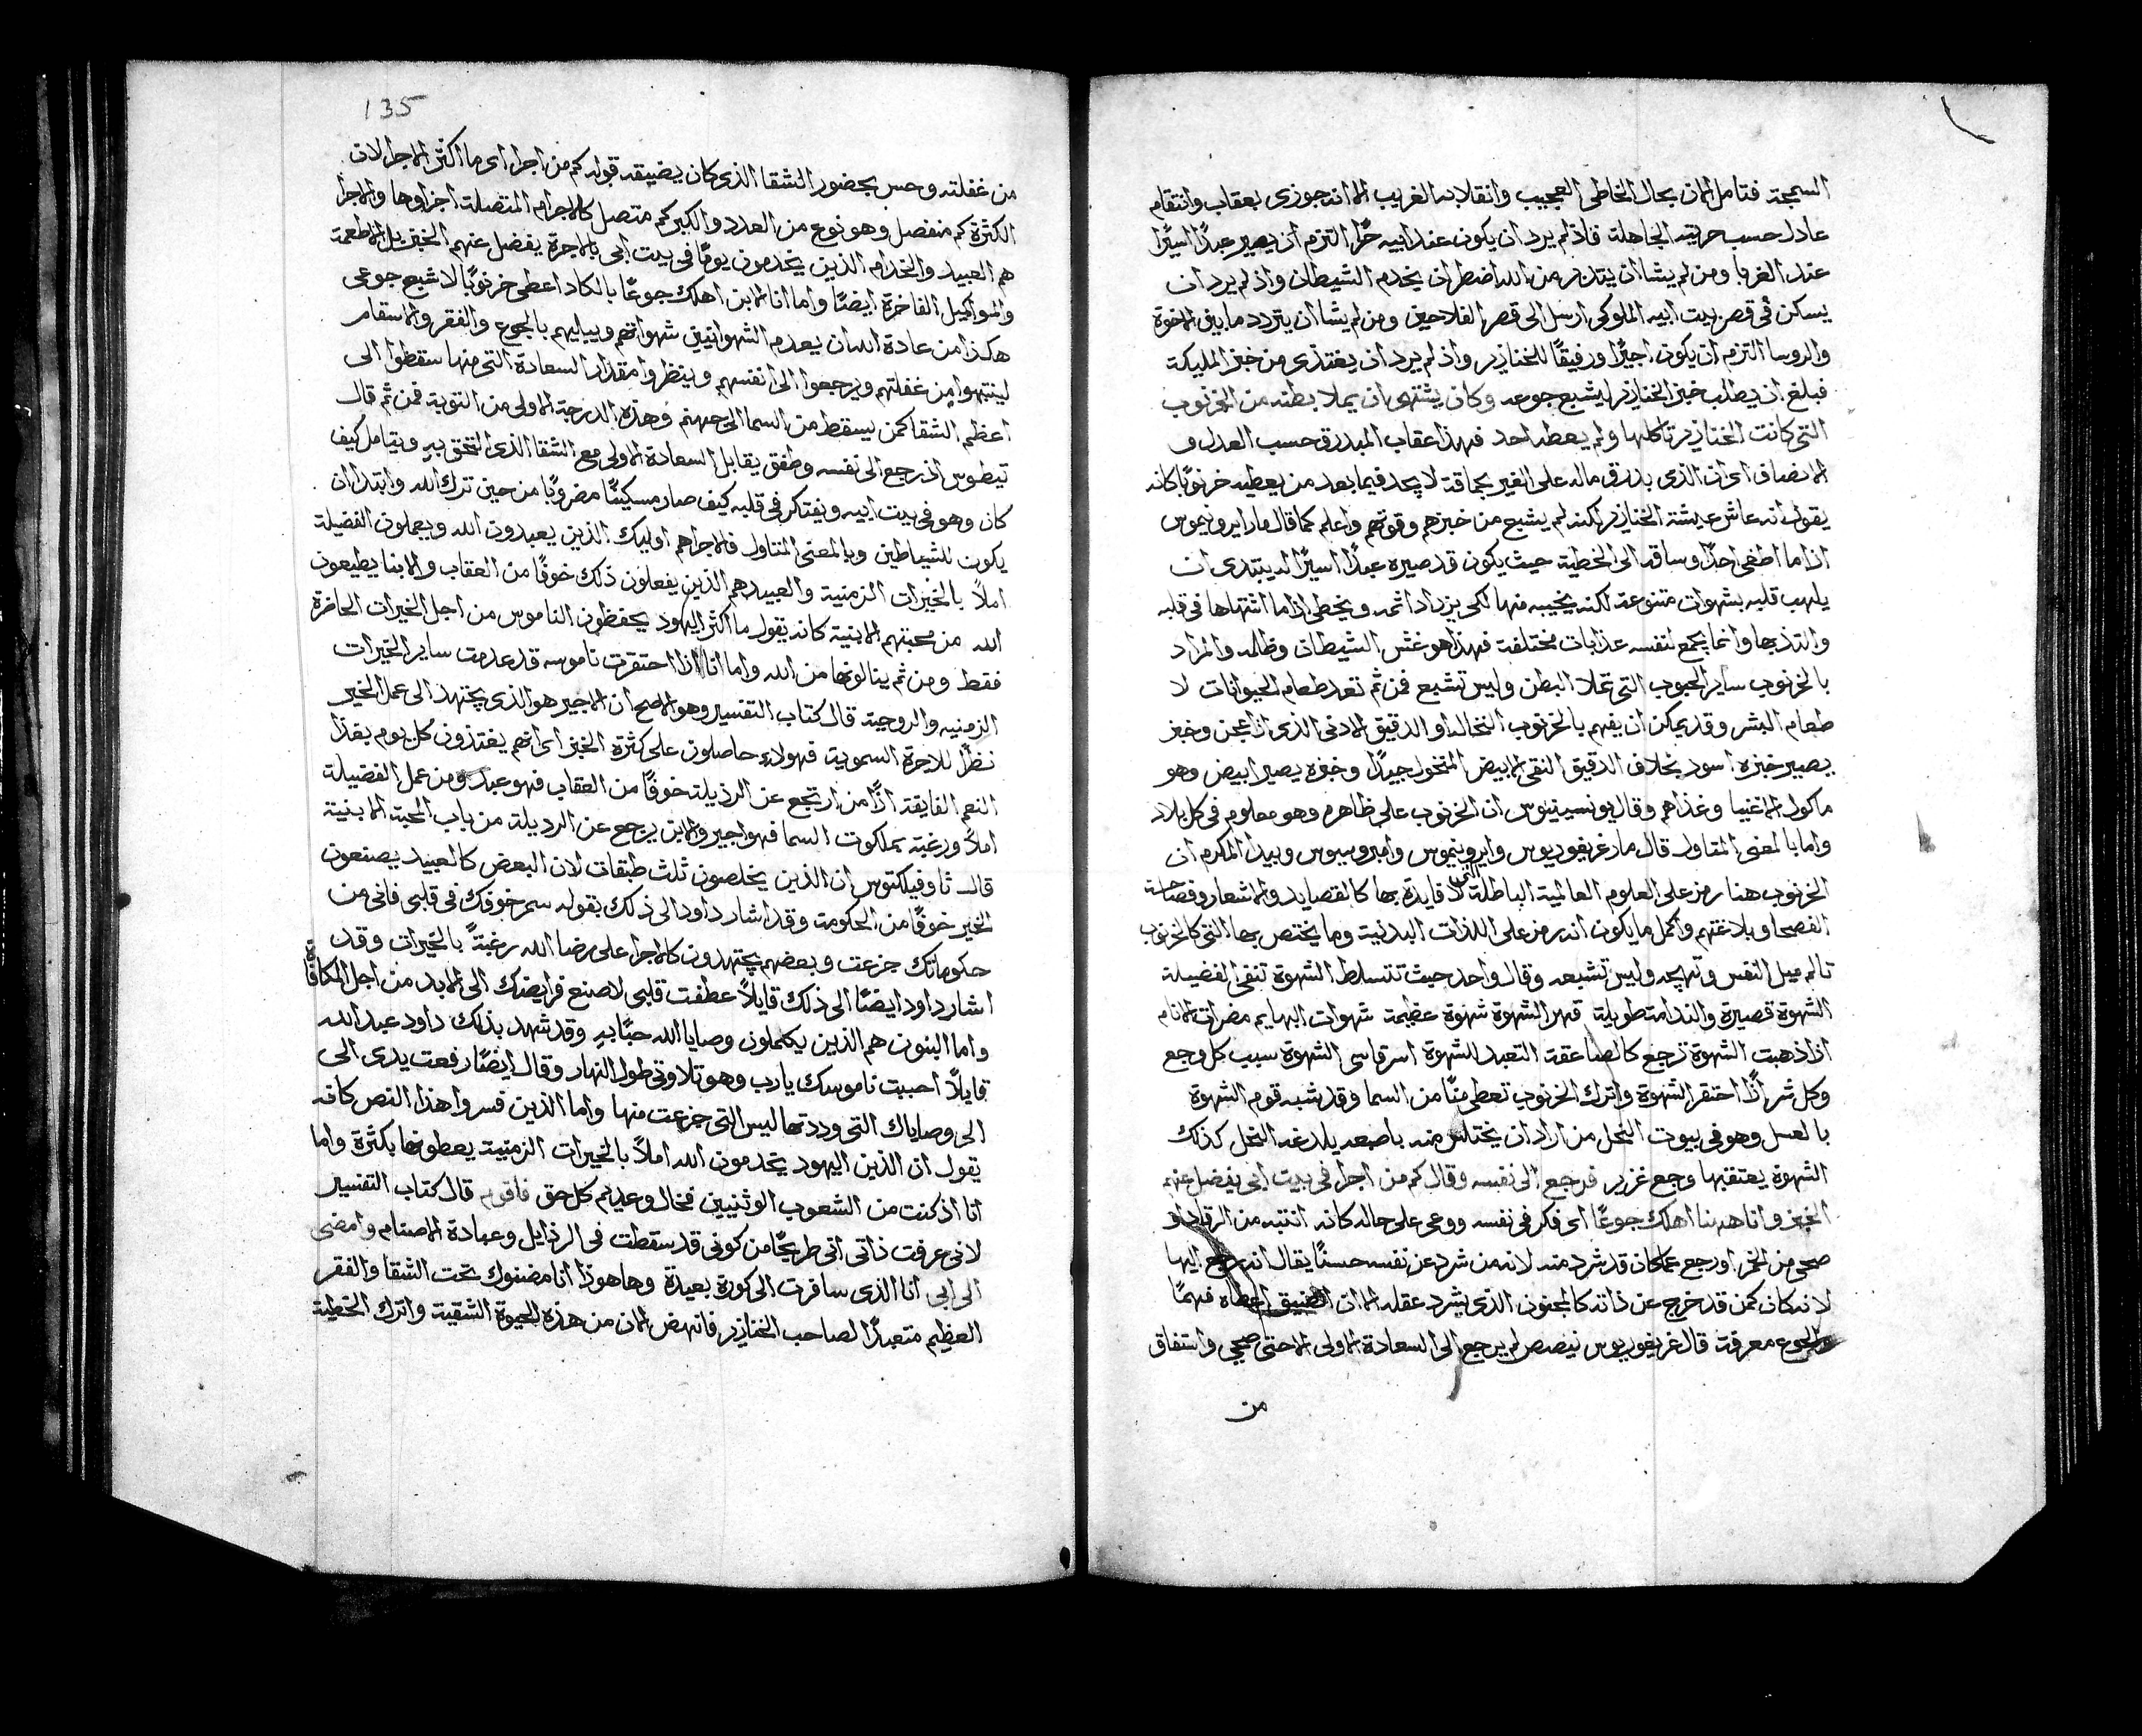 السميحة فتامل الان بحال الخاطى العجيب وانقلابه الغريب الا انه جوزى بعقاب وانتقام
عادل حسب حريته الجاهلة فاذ لم يرد ان يكون عند ابيه حرًا التزم ان يصير عبدًا اسيرًا
عند الغربا ومن لم يشا ان يتدبر من الله اضطر ان يخدم الشيطان واذ لم يرد ان
يسكن فى قصر بيت ابيه الملوكى ارسل الى قصر الفلاحين ومن لم يشا ان يتردد ما بين الاخوة
والروسا التزم ان يكون اجيرًا ورفيقًا للخنازير واذ لم يرد ان يغتذى من خبز المليكة
فبلغ ان يطلب خبز الخنازير ليشبع جوعه وكان يشتهى ان يملا بطنه من الخرنوب
التى كانت الخنازير تاكلها ولم يعطه احد فهذا عقاب المبدرق حسب العدل و
الانصاف اى ان الذى بدرق ماله على الغير بحماقة لا يجد فيما بعد من يعطيه خرنوبًا كانه
يقول انه عاش عيشة الخنازير لكنه لم يشبع من خبزهم وقوتهم واعلم كما قال مار ايرونيموس
اذا ما اطغى احدًا وساقه الى الخطية حيث يكون قد صيره عبدًا اسيرًا له يبتدى ان
يلهب قلبه بشهوات متنوعة لكنه يخيبه منها لكى يزداد اثمه ويخطى اذا ما اشتهاها فى قلبه
والتذ بها وانما يجمع لنفسه عذابات مختلفة فهذا هو غش الشيطان وظلمه والمراد
بالخرنوب ساير الحبوب التى تملا البطن وليس تشبع فمن ثم تعد طعام الحيوانات لا
طعام البشر وقد يمكن ان يفهم بالخرنوب النخالة او الدقيق الادنى الذى اذا عجن وخبز
يصير خبزه اسود بخلاف الدقيق النقى الابيض المنخول جيدًا وخبزه يصير ابيض وهو
ماكول الاغنيا وغذاهم وقال يونسينيوس ان الخرنوب على ظاهره وهو معلوم فى كل بلاد
واما بالمعنى المتاول قال مار غريغوريوس وايرونيموس وامبروسيوس وبيدا المكرم ان
الخرنوب هنا رمز على العلوم العالمية الباطلة التى لا فايدة بها كالقصايد والاشعار وفصاحة
الفصحا وبلاغتهم واكمل ما يكون انه رمز على اللذات البدنية وما يختص بها التى كالخرنوب
تالم ميل النفس وتهيجه وليس تشبعه وقال واحد حيث تتسلط الشهوة تنفى الفضيلة
الشهوة قصيرة والندامة طويلة قهر الشهوة شهوة عظيمة شهوات البهايم مضرات الانام
اذا ذهبت الشهوة ترجع كالصاعقة التعبد للشهوة اسر قاسى الشهوة سبب كل وجع
وكل شر اذًا احتقر الشهوة واترك الخرنوب تعطى منًا من السما وقد شبه قوم الشهوة
بالعسل وهو فى بيوت النحل من اراد ان يختلس منه باصبعه يلدغه النحل كذلك
الشهوة يعتقبها وجع غزير فرجع الى نفسه وقال كم من اجرا فى بيت ابى يفضل عنهم
الخبز وانا ههنا اهلك جوعًا اى فكر فى نفسه ووعى على حاله كانه انتبه من الرقاد او
صحى من الخمر او رجع عما كان قد شرد منه لانه من شرد عن نفسه حسنًا يقال انه رجع اليها
لانه كان كمن قد خرج عن ذاته كالمجنون الذى يشرد عقله الا ان الضيق اعطاه فهمًا
والجوع معرفة قال غريغوريوس نيصص لم يرجع الى السعادة الاولى الا حتى صحي واستفاق
من
135
من غفلته وحس بحضور الشقا الذى كان يضيقه قوله كم من اجرا اى ما اكثر الاجرا لان
الكثرة كم منفصل وهو نوع من العدد والكبر كم متصل كالاجرام المتصلة اجزاوها والاجرا
هم العبيد والخدام الذين يخدمون يومًا فى بيت ابى بالاجرة يفضل عنهم الخبز بل الاطعمة
والمواكيل الفاخرة ايضًا واما انا الابن اهلك جوعًا بالكاد اعطى خرنوبًا لاشبع جوعى
هكذا من عادة الله ان يعدم الشهوانيين شهواتهم ويبليهم بالجوع والفقر والاسقام
لينتبهوا من غفلتهم ويرجعوا الى انفسهم وينظروا مقدار السعادة التى منها سقطوا الى
اعظم الشقا كمن يسقط من السما الى جهنم وهذه الدرجة الاولى من التوبة فمن ثم قال
تيطوس اذ رجع الى نفسه وطفق يقابل السعادة الاولى مع الشقا الذى التحق به ويتامل كيف
كان وهو فى بيت ابيه ويفتكر فى قلبه كيف صار مسكينًا مضروبًا من حين ترك الله وابتدا ان
يكون للشياطين وبالمعنى المتاول فالاجرا هم اوليك الذين يعبدون الله ويعملون الفضيلة
املاً بالخيرات الزمنية والعبيد هم الذين يفعلون ذلك خوفًا من العقاب والابنا يطيعون
الله من محبتهم الابنية كانه يقول ما اكثر اليهود يحفظون الناموس من اجل الخيرات الحاضرة
فقط ومن ثم ينالونها من الله واما انا اذا احتقرت ناموسه قد عدمت ساير الخيرات
الزمنيه والروحية قال كتاب التفسير وهو الاصح ان الاجير هو الذى يجتهد الى عمل الخير
نظرًا للاجرة السموية فهولاء حاصلون على كثرة الخبز اى انهم يغتذون كل يوم بغذا
النعم الفايقة اذًا من ارتجع عن الرذيلة خوفًا من العقاب فهو عبد ومن عمل الفضيلة
املاً ورغبة بملكوت السما فهو اجير والابن يرجع عن الرديلة من باب المحبة الابنية
قال ثاوفيلكتوس ان الذين يخلصون ثلث طبقات لان البعض كالعبيد يصنعون
الخير خوفًا من الحكومة وقد اشار داود الى ذلك بقوله سمر خوفك فى قلبى فانى من
حكوماتك جزعت وبعضهم يجتهدون كالاجرا على رضا الله رغبةً بالخيرات وقد
اشار داود ايضًا الى ذلك قايلاً عطفت قلبى لاصنع فرايضك الى الابد من اجل المكافاة
واما البنون هم الذين يكملون وصايا الله حبًا به وقد شهد بذلك داود عبد الله
قايلاً احببت ناموسك يارب وهو تلاوتى طول النهار وقال ايضًا رفعت يدى الى
الى وصاياك التى وددتها ليس التى جزعت منها واما الذين فسروا هذا النص كانه
يقول ان الذين اليهود يخدمون الله املاً بالخيرات الزمنية يعطونها بكثرة واما
انا اذ كنت من الشعوب الوثنيين فخال وعديم كل حق فاقوم قال كتاب التفسير
لانى عرفت ذاتى انى طريحًا من كونى قد سقطت فى الرذايل وعبادة الاصنام وامضى
الى ابى انا الذى سافرت الى كورة بعيدة وها هوذا انا مضنوك تحت الشقا والفقر
العظيم متعبدًا لصاحب الخنازير فانهض الان من هذه الحيوة الشقية واترك الخطية